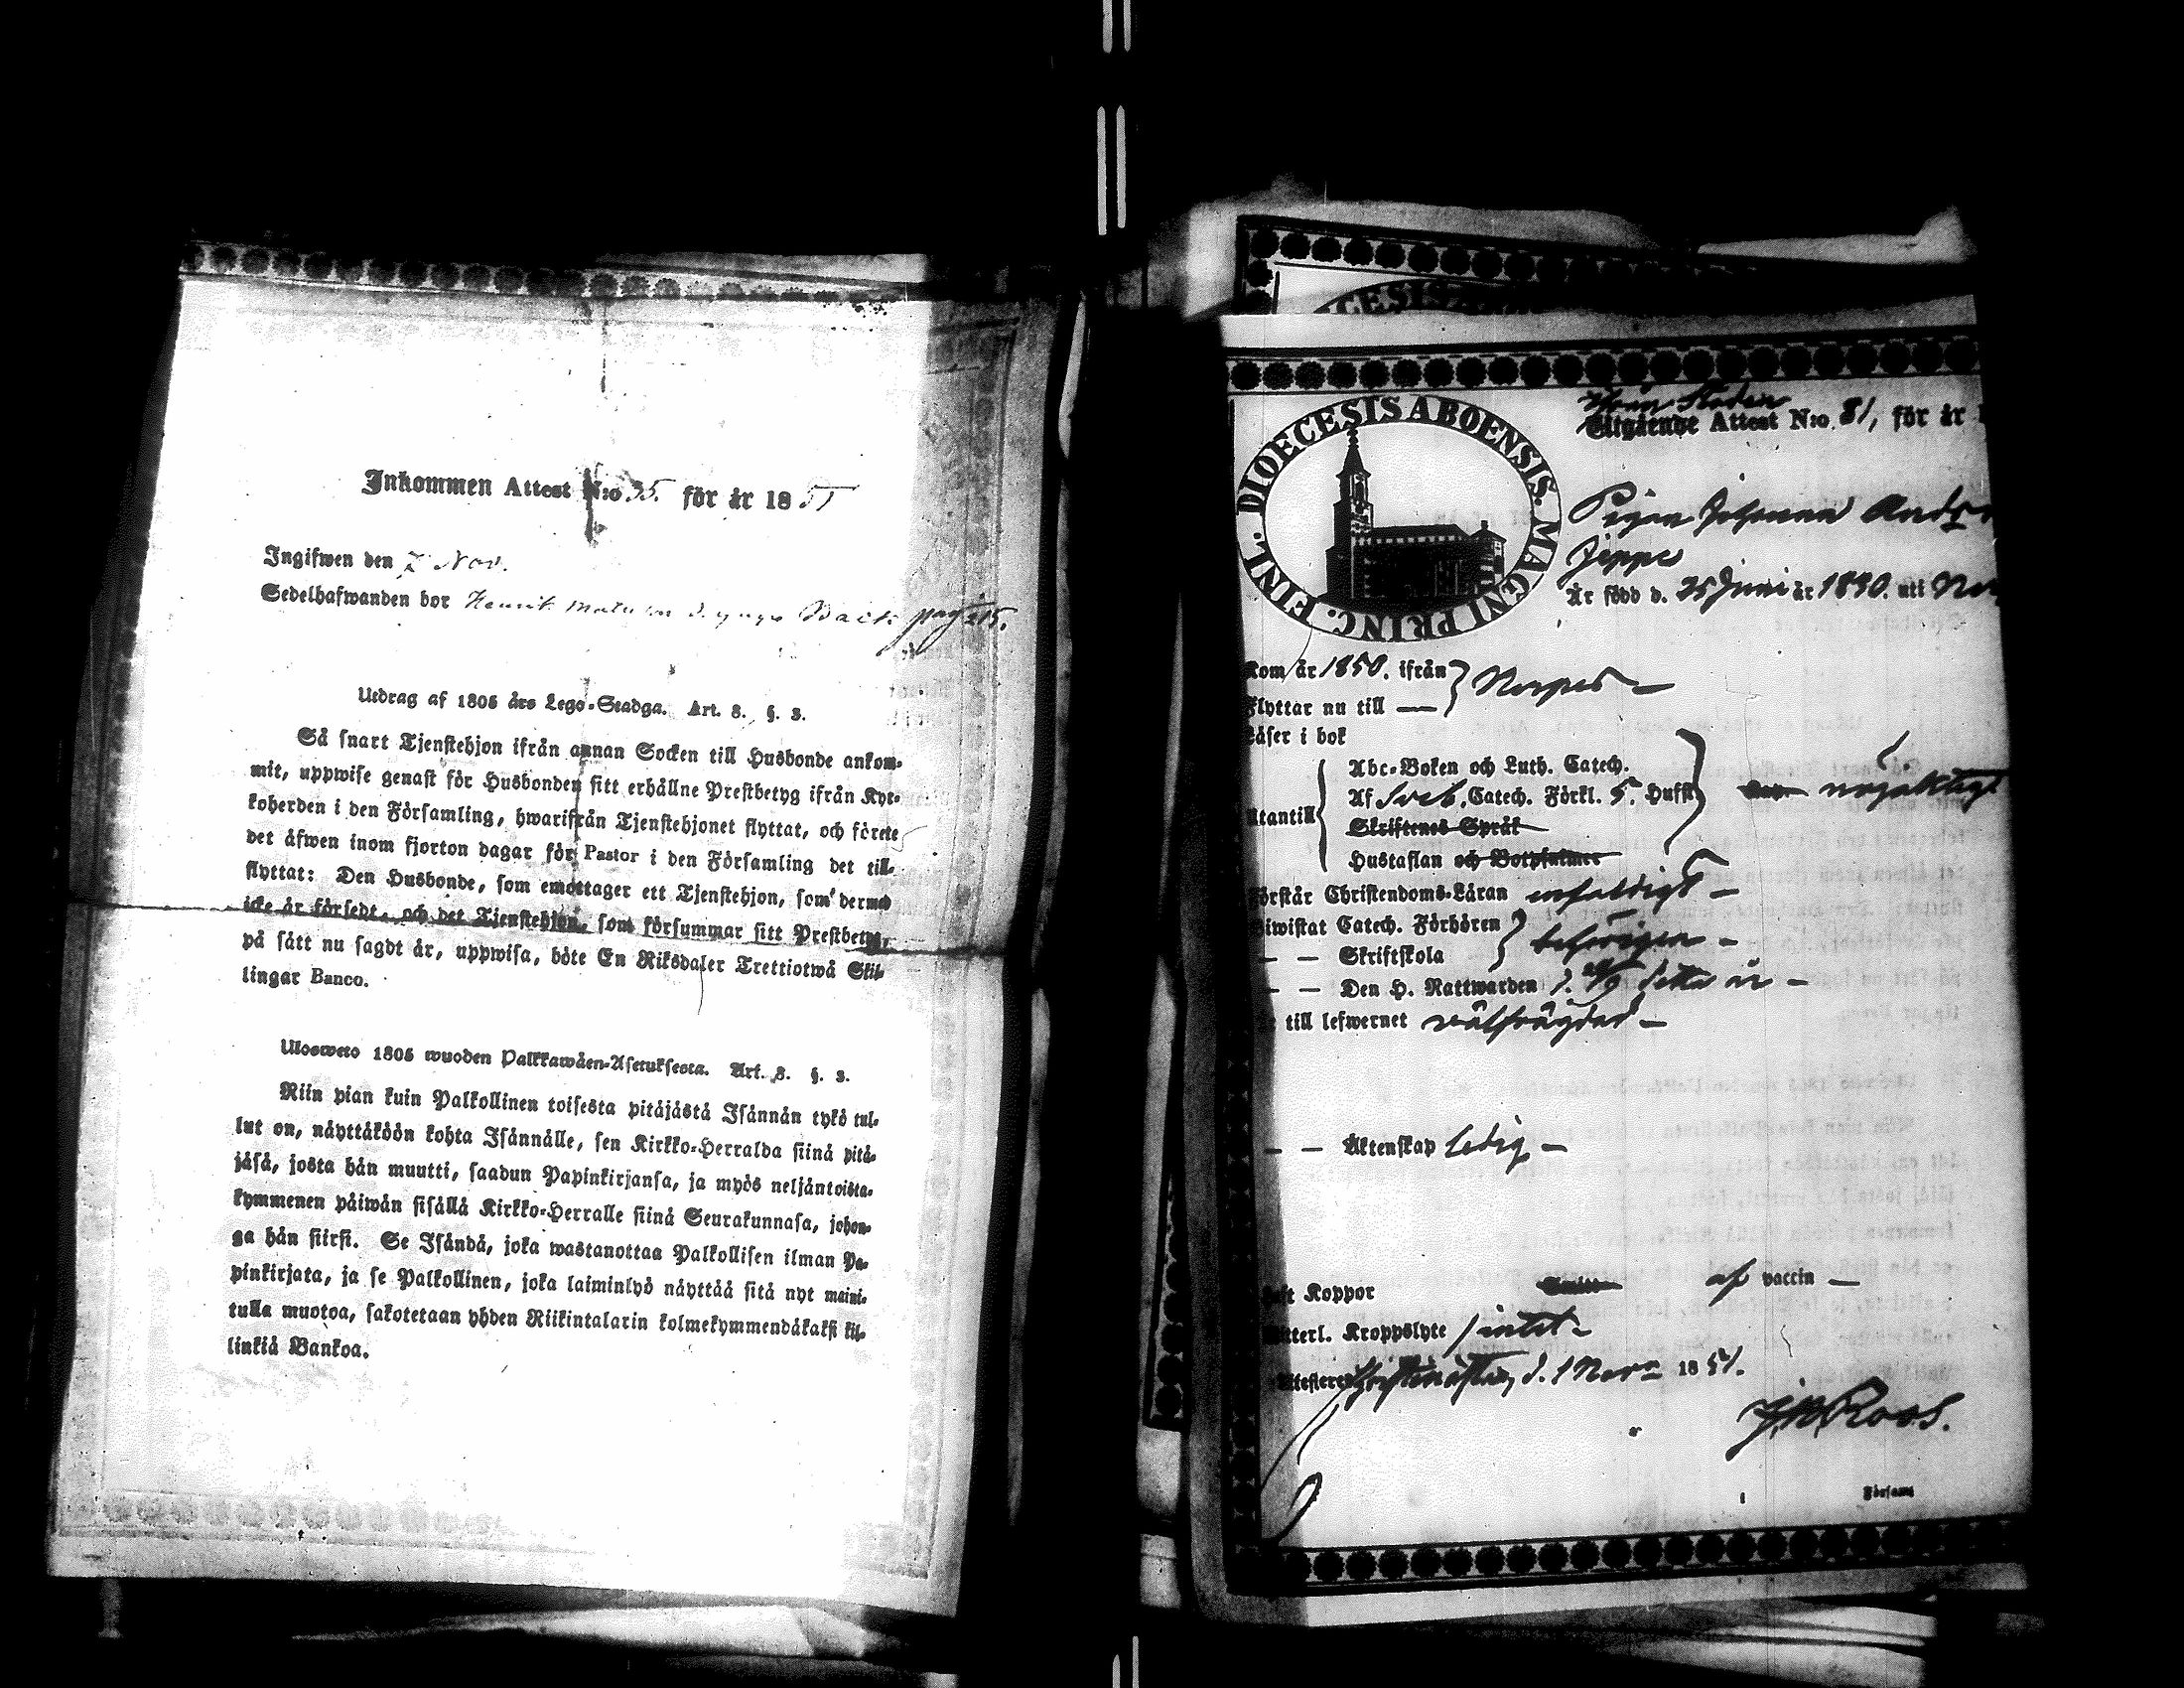 Inkommen Attest N:o 35. för år 1851
Ingifwen den 7 Nov.
Sedelhafwanden bor Henrik Back pag 215.
Utdrag af 1805 års Lego-Stadga. Art. 8. §. 3.
Så snart Tjenstehjon ifrån annan Socken till Husbonde ankom-
mit, uppwise genast för Husbonden sitt erhållne Prestbetyg ifrån Kyr-
koherden i den Församling, hwarifrån Tjenstehjonet flyttat, och förete
det äfwen inom fjorton dagar för Pastor i den Församling det till-
flyttat: Den Husbonde, som emottager ett Tjenstehjon, som dermed
icke är försedt, och det Tjenstehjon, som försummar sitt Prestbetyg,
på sätt nu sagdt är, uppwisa, böte En Riksdaler Trettiotwå Skil-
lingar Banco.
Uloswето 1805 wuoden Palkkawäen-Asetuksesta. Art. 8. §. 3.
Niin pian kuin Palkollinen toisesta pitäjästä Isännän tykö tul-
lut on, näyttäköön kohta Isännälle, sen Kirkko-Herralda siinä pitä-
jäsä, josta hän muutti, saadun Papinkirjansa, ja myös neljäntoista-
kymmenen päiwän sisällä Kirkko-Herralle siinä Seurakunnasa, johon-
ga hän siirsi. Se Isändä, joka wastanottaa Palkollisen ilman Pa-
pinkirjata, ja se Palkollinen, joka laiminlyö näyttää sitä nyt maini-
tulla muotoa, sakotetaan yhden Riikintalarin kolmekymmendäkaksi kil-
linkiä Bankoa.
DIOECESIS
DIOECESIS ABOENSIS. MAGNI PRINC. FINL.
Utgående Attest N:o 81, för år 1
Pigan Johanna Andr
Jeppe
Är född d. 25 Juni år 1830. uti När
Kom år 1850. ifrån
Närpes —
Flyttar nu till —
Läser i bok
Abc-Boken och Luth. Catech.
Af Sveb. Catech. Förkl. 5. Hufst
nöjaktigt
Utantill
Skriftenes Språk
Hustaflan och Botpsalmer
Förstår Christendoms-Läran enfaldigt —
Biwistat Catech. Förhören
behörigen —
— — Skriftskola
— — Den H. Nattwarden detta år —
till lefwernet välfrägdad —
— — Äktenskap ledig —
Haft Koppor af vaccin —
Ytterl. Kroppslyte intet —
Attesterer Christinæstad, d. 1 Nov. 1851.
J. M. Roos.
Församl